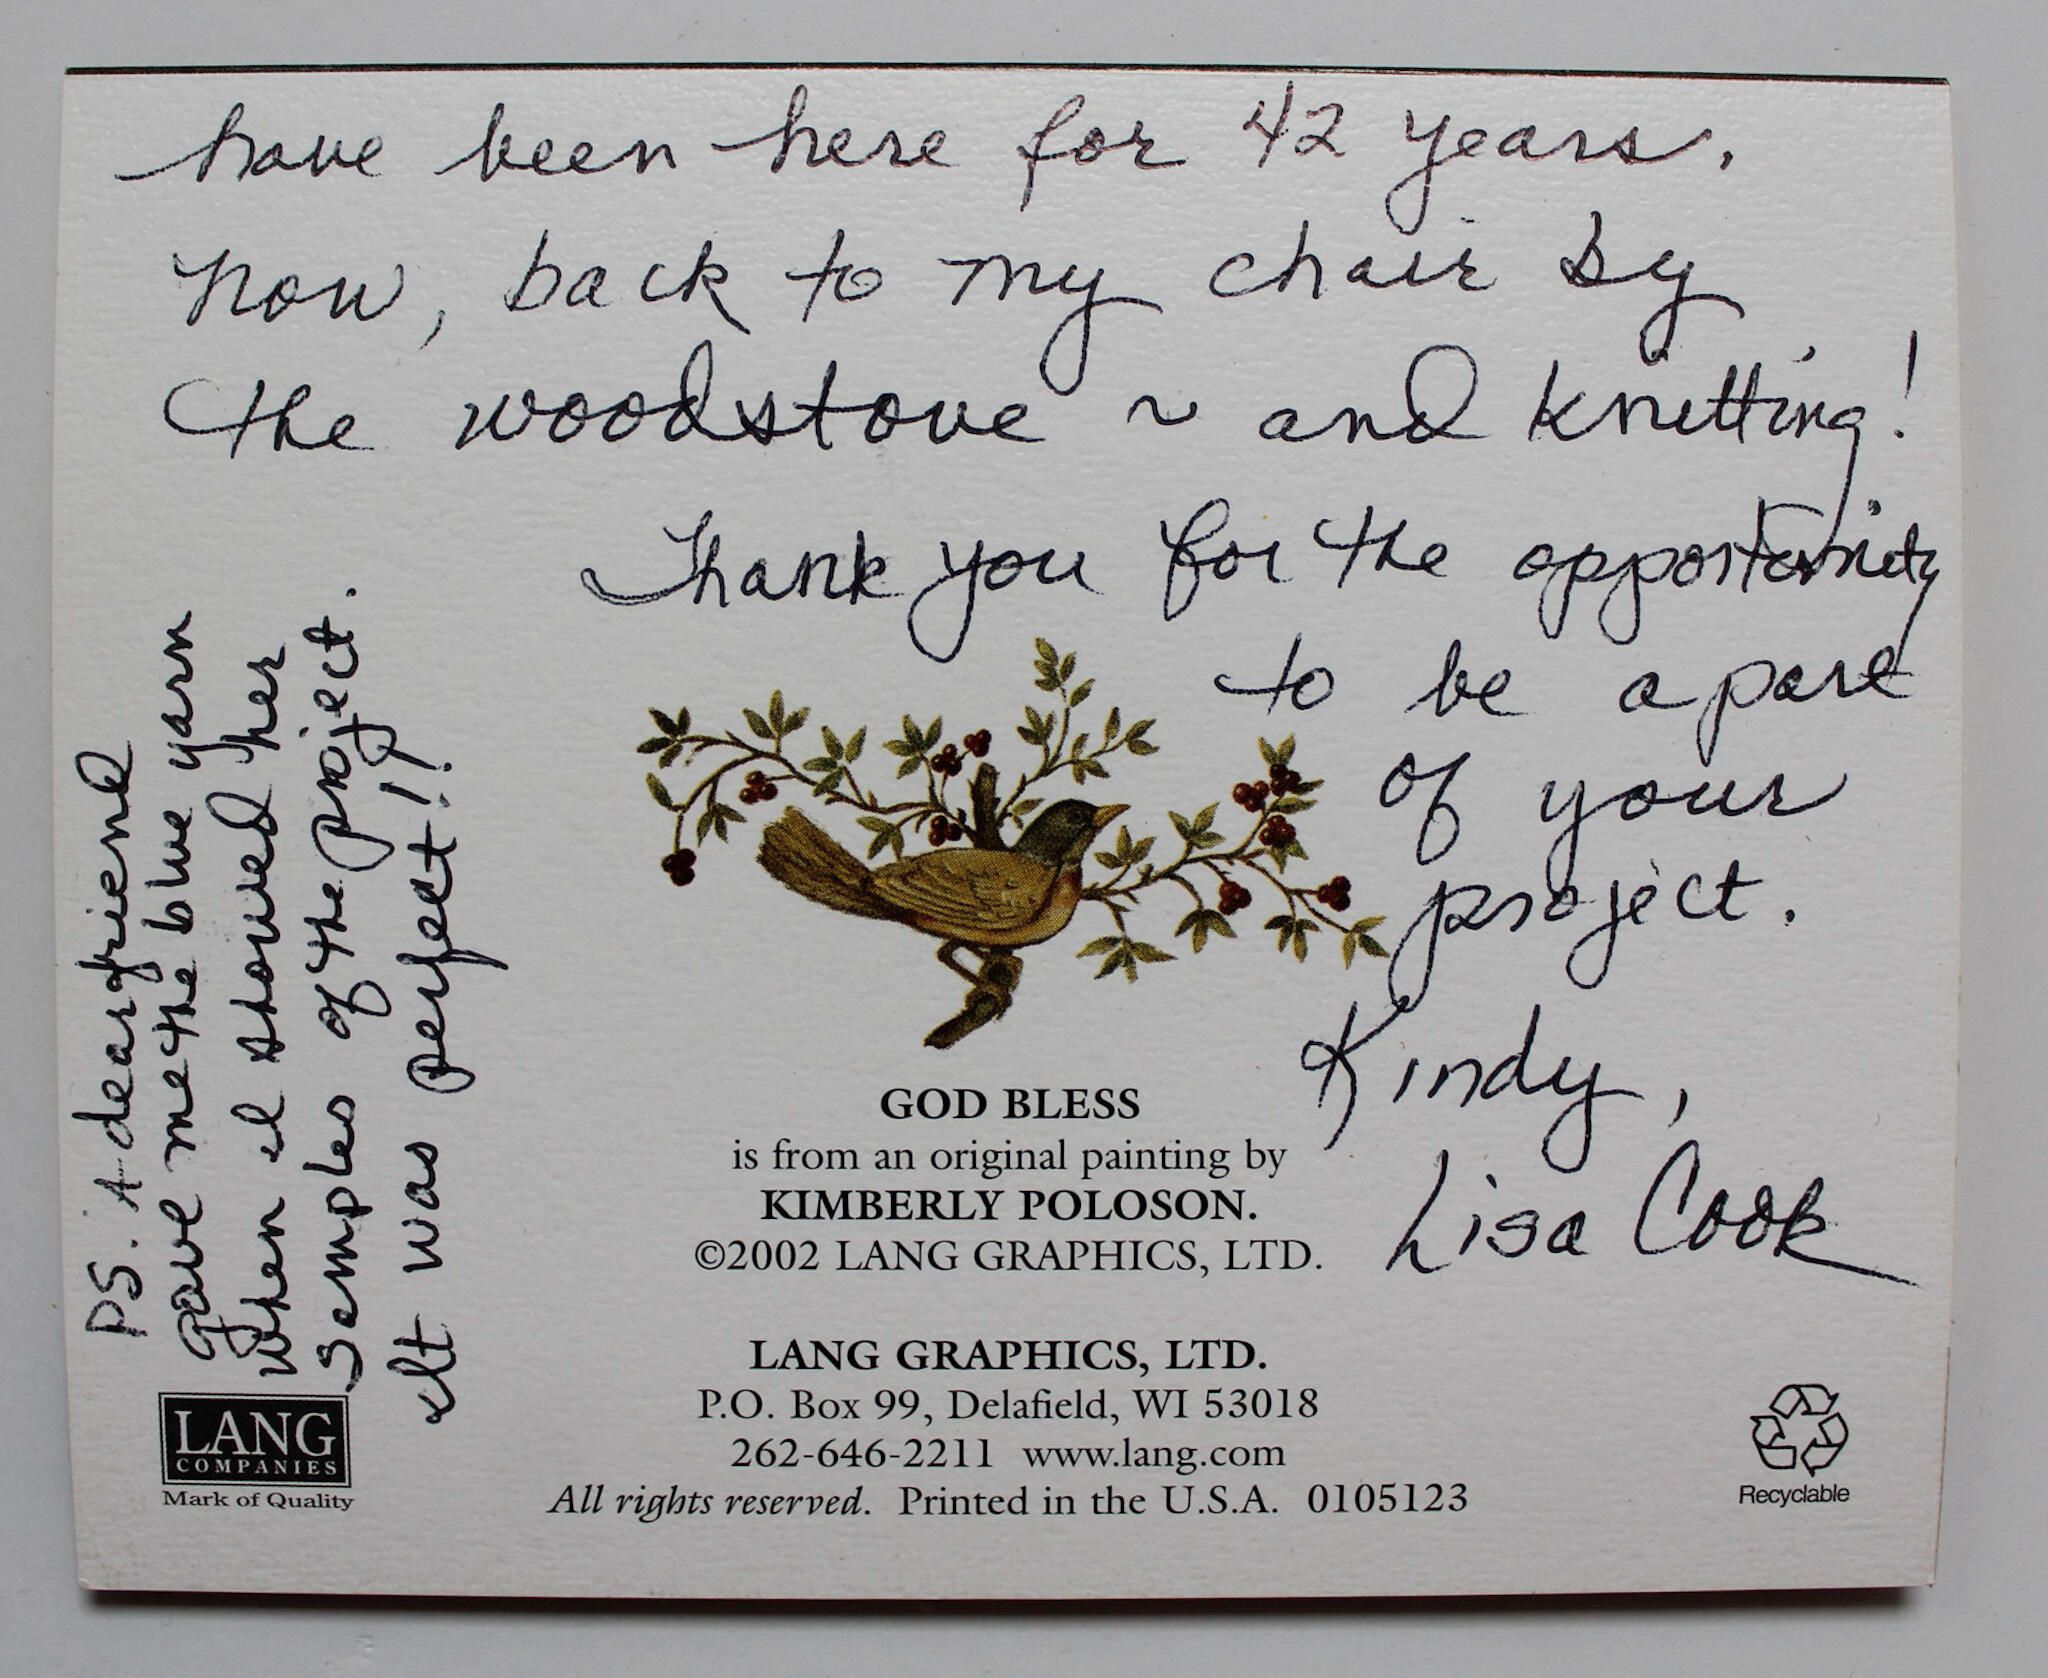 have been here for 42 years.
Now, back to my chair by
the woodstove ~ and knitting!
Thank you for the opportunity
to be a part
of your
project.
Kindy,
Lisa Cook
PS. A dear friend
gave me the blue yarn
when I showed her
samples of the project.
It was perfect!!
GOD BLESS
is from an original painting by
KIMBERLY POLOSON.
©2002 LANG GRAPHICS, LTD.
LANG GRAPHICS, LTD.
P.O. Box 99, Delafield, WI 53018
262-646-2211 www.lang.com
All rights reserved. Printed in the U.S.A. 0105123
LANG
COMPANIES
Mark of Quality
Recyclable